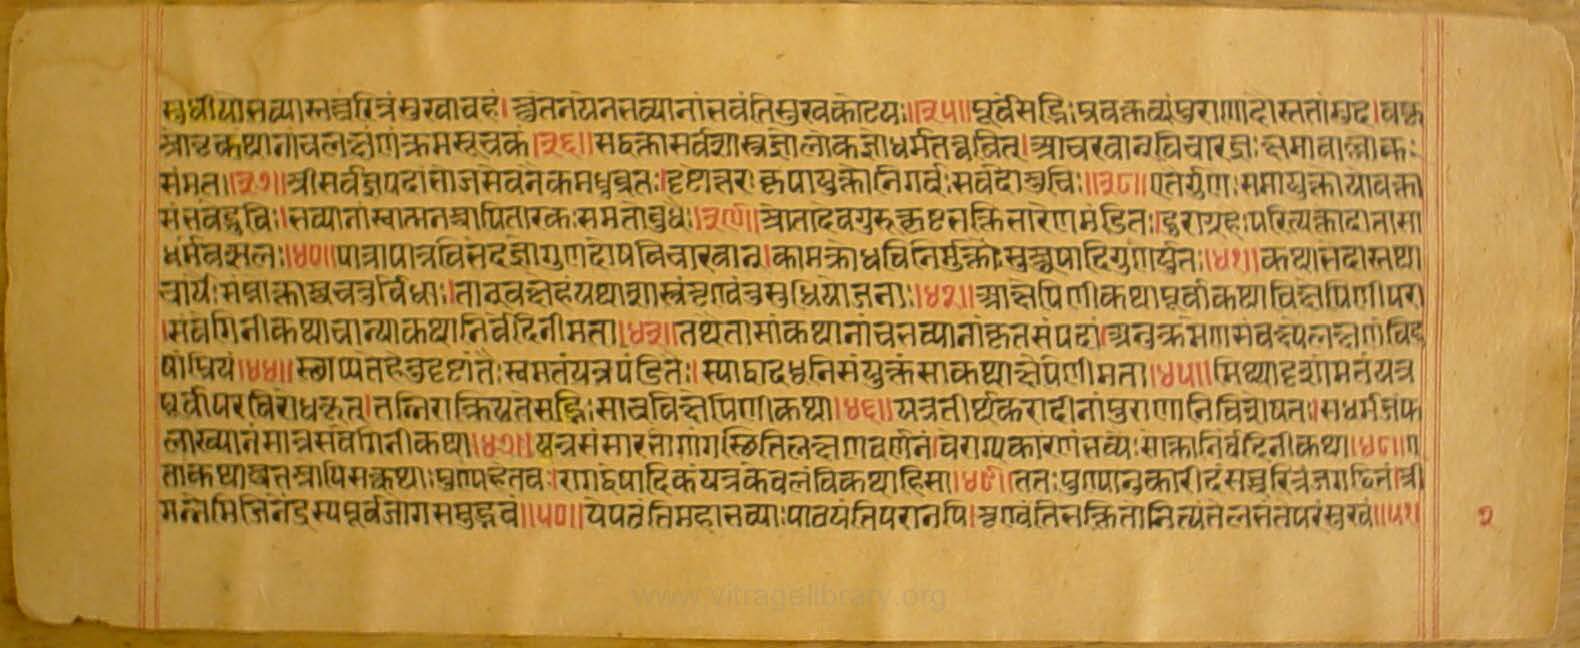 सुधीयो भव्यास्तच्चरित्रं सुखावहं। श्रुतेन येन भव्यानां भवंति सुखकोटयः॥३५॥ पूर्वं सद्भिः प्रवक्तव्यं पुराणादौ सतां मुदे। वक्तृ
श्रोतृकथानां च लक्षणं क्रमसूचकं॥३६॥ सद्वक्ता सर्वशास्त्रज्ञो लोकज्ञो धर्मतत्त्ववित्। आचारवान् विचारज्ञः क्षमावान् लोक
संमतः॥३७॥ श्रीसर्वज्ञपदांभोजसेवनैकमधुव्रतः। कृपायुक्तो निगर्वः सर्वदा शुचिः॥३८॥ एतैर्गुणैः समायुक्तो यो वक्ता
स भवेद्भुवि। भव्यानां स्वात्मनश्चापि तारकः स मतो बुधैः॥३९॥ श्रोता देवगुरु भक्तिभारेण मंडितः। दुराग्रहः परित्यक्तो दाता सा
धर्मवत्सलः॥४०॥ पात्रापात्रविभेदज्ञो गुणदोषविचारवान्। कामक्रोधविनिर्मुक्तो सुश्रूषादिगुणैर्युतः॥४१॥ कथाभेदास्तथा
चार्यैः संप्रोक्ताश्च चतुर्विधाः। तावद्वक्षेहं यथाशास्त्रं शृण्वंतु सुधियो जनाः॥४२॥ आक्षेपिणी कथा पूर्वा कथा विक्षेपिणी परा
। संवेगिनी कथा चान्या कथा निर्वेदिनी मता॥४३॥ तथैतासां कथानां च भव्यानां कृतसंपदां। अनुक्रमेण संवक्ष्ये लक्षणं विदु
षां प्रियं॥४४॥ स्थाप्यते हेतुदृष्टांतैः स्वमतं यत्र पंडितैः। स्याद्वादध्वनिसंयुक्तं सा कथाक्षेपिणी मता॥४५॥ मिथ्यादृशां मतं यत्र
पूर्वापरविरोधकृत्। तन्निराक्रियते सद्भिः सा च विक्षेपिणी कथा॥४६॥ यत्र तीर्थकरादीनां पुराणानि विशेषतः। सधर्म फ
लाख्यानं मात्रसंवेगिनी कथा॥४७॥ यत्र संसारभोगांगस्थितिलक्षणवर्णनं। वैराग्यकारणं भव्यैः सोक्ता निर्वेदिनी कथा॥४८॥ ए
ताः कथाश्चतस्रोपि सत्कथाः पुण्यहेतवः। रागद्वेषादिकं यत्र केवलं विकथा हि सा॥४९॥ ततः पुण्यानुकारीदं सच्चरित्रं जगद्धितं। श्री
मन्नेमिजिनेंद्रस्य पूर्वभोगसमुद्भवं॥५०॥ ये पठंति महाभव्याः पाठयंति परानपि। शृण्वंति भक्तितो नित्यं ते लभंते परं सुखं॥५१
७
www.vitragelibrary.org